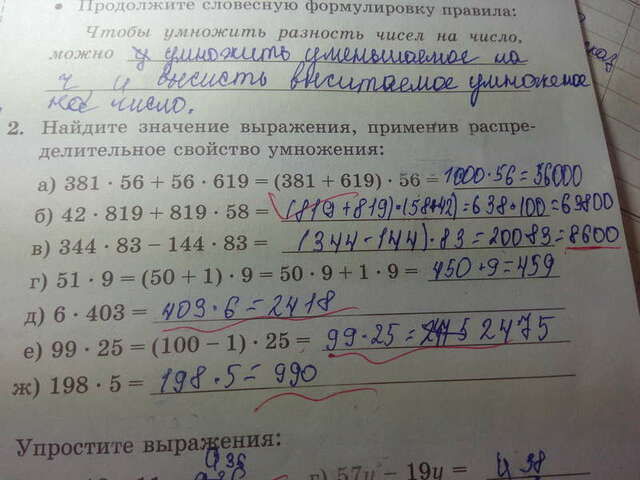 • Продолжите словесную формулировку правила:
Чтобы умножить разность чисел на число,
можно умножить уменьшаемое на
ч и высисть вычитаемое умноженое
на число.
2. Найдите значение выражения, применив распре-
делительное свойство умножения:
а) 381 · 56 + 56 · 619 = (381 + 619) · 56 = 1000·56=56000
б) 42 · 819 + 819 · 58 = (819+819)·(58+42)=638·100=63800
в) 344 · 83 – 144 · 83 = (344-144)·83=20083=8600
г) 51 · 9 = (50 + 1) · 9 = 50 · 9 + 1 · 9 = 450+9=459
д) 6 · 403 = 403·6=2418
е) 99 · 25 = (100 – 1) · 25 = 99·25= 2475
ж) 198 · 5 = 198·5= 990
Упростите выражения:
г) 57y – 19y = y 38